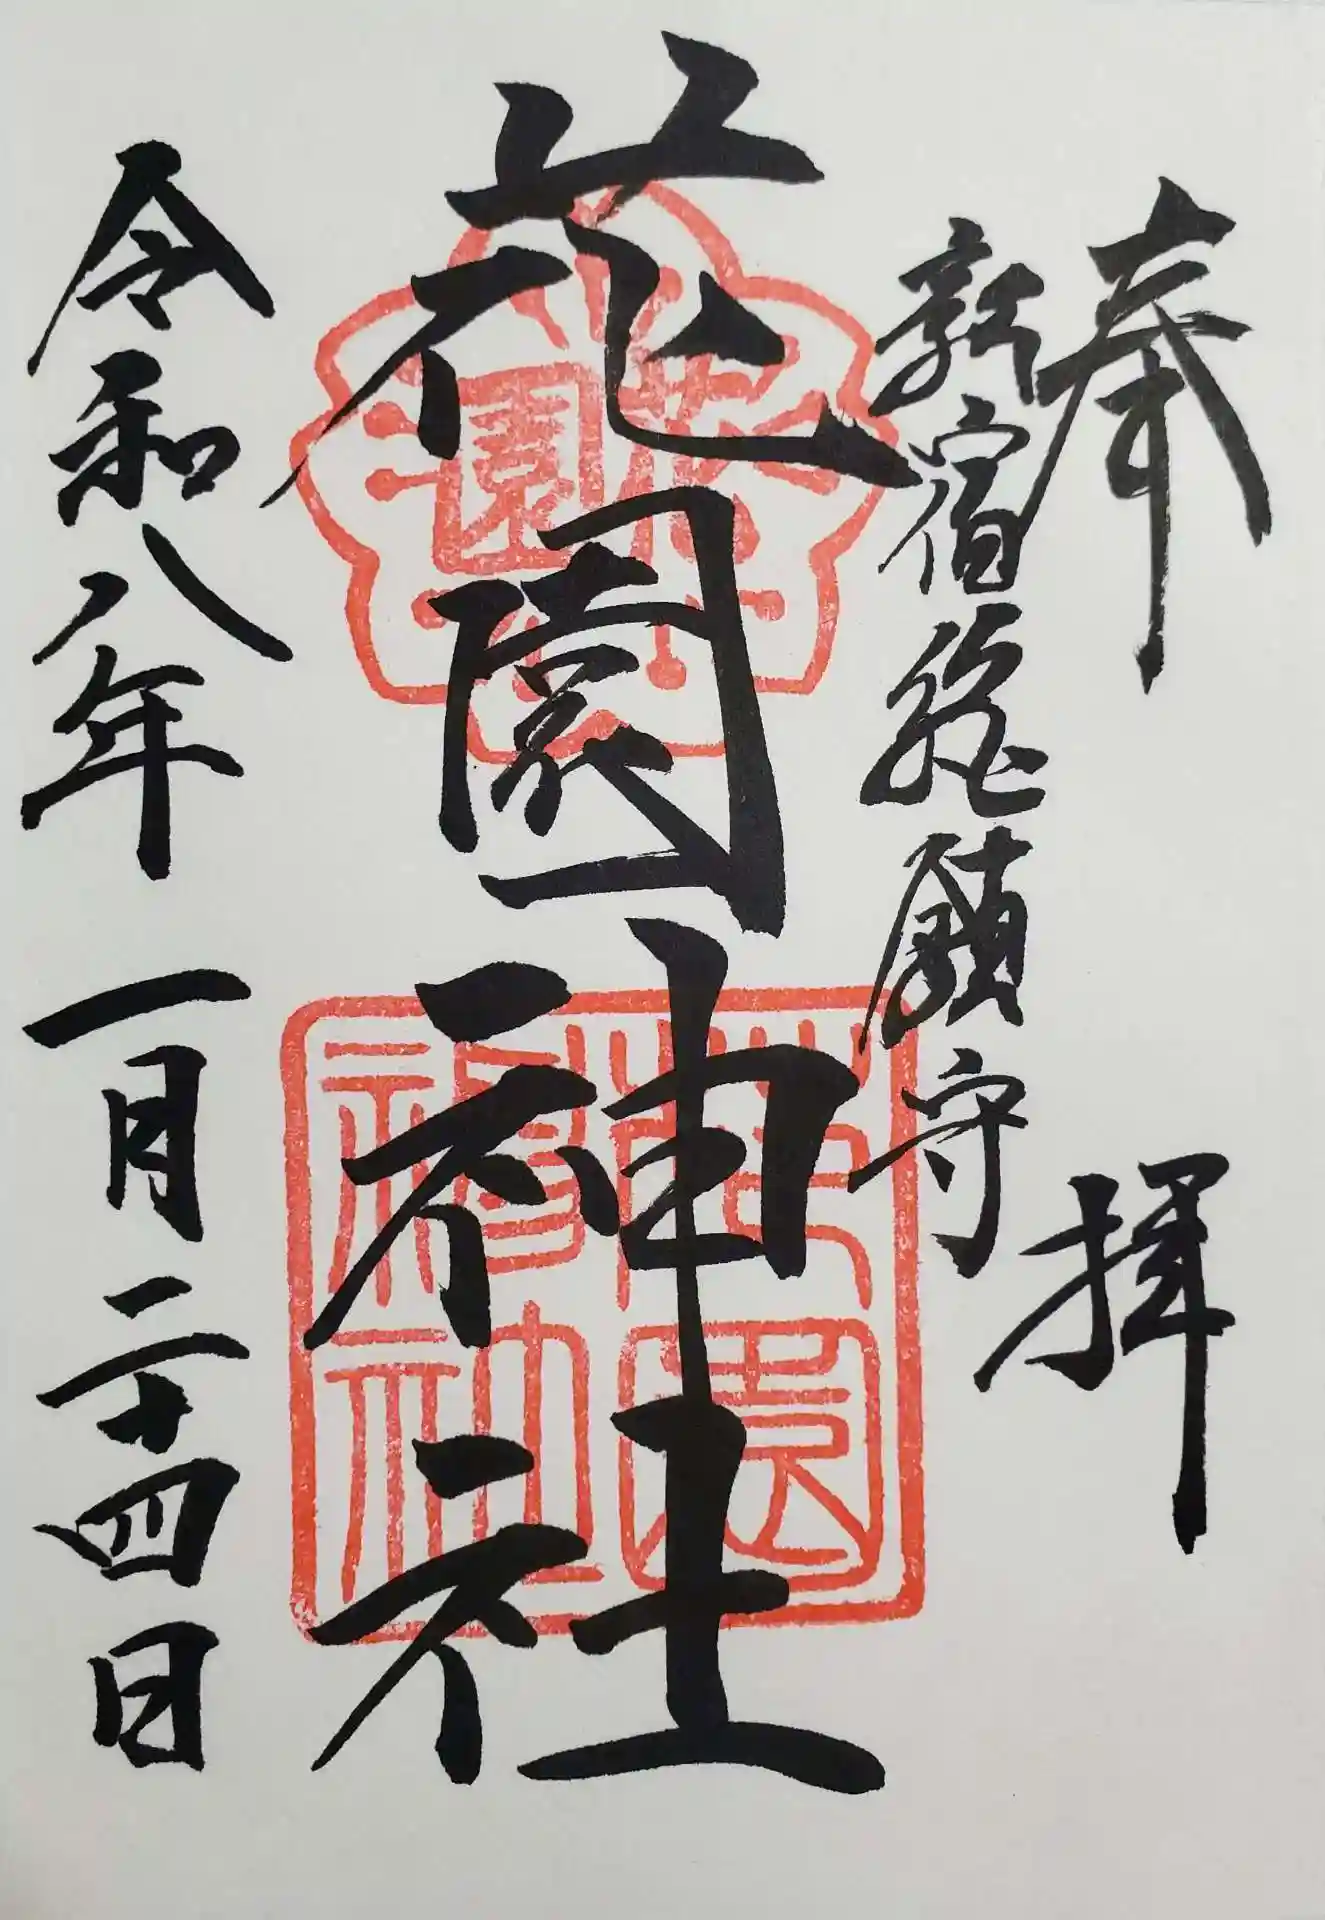 奉拝
新宿総鎮守
花園神社
令和八年一月二十四日
花園
花園神社